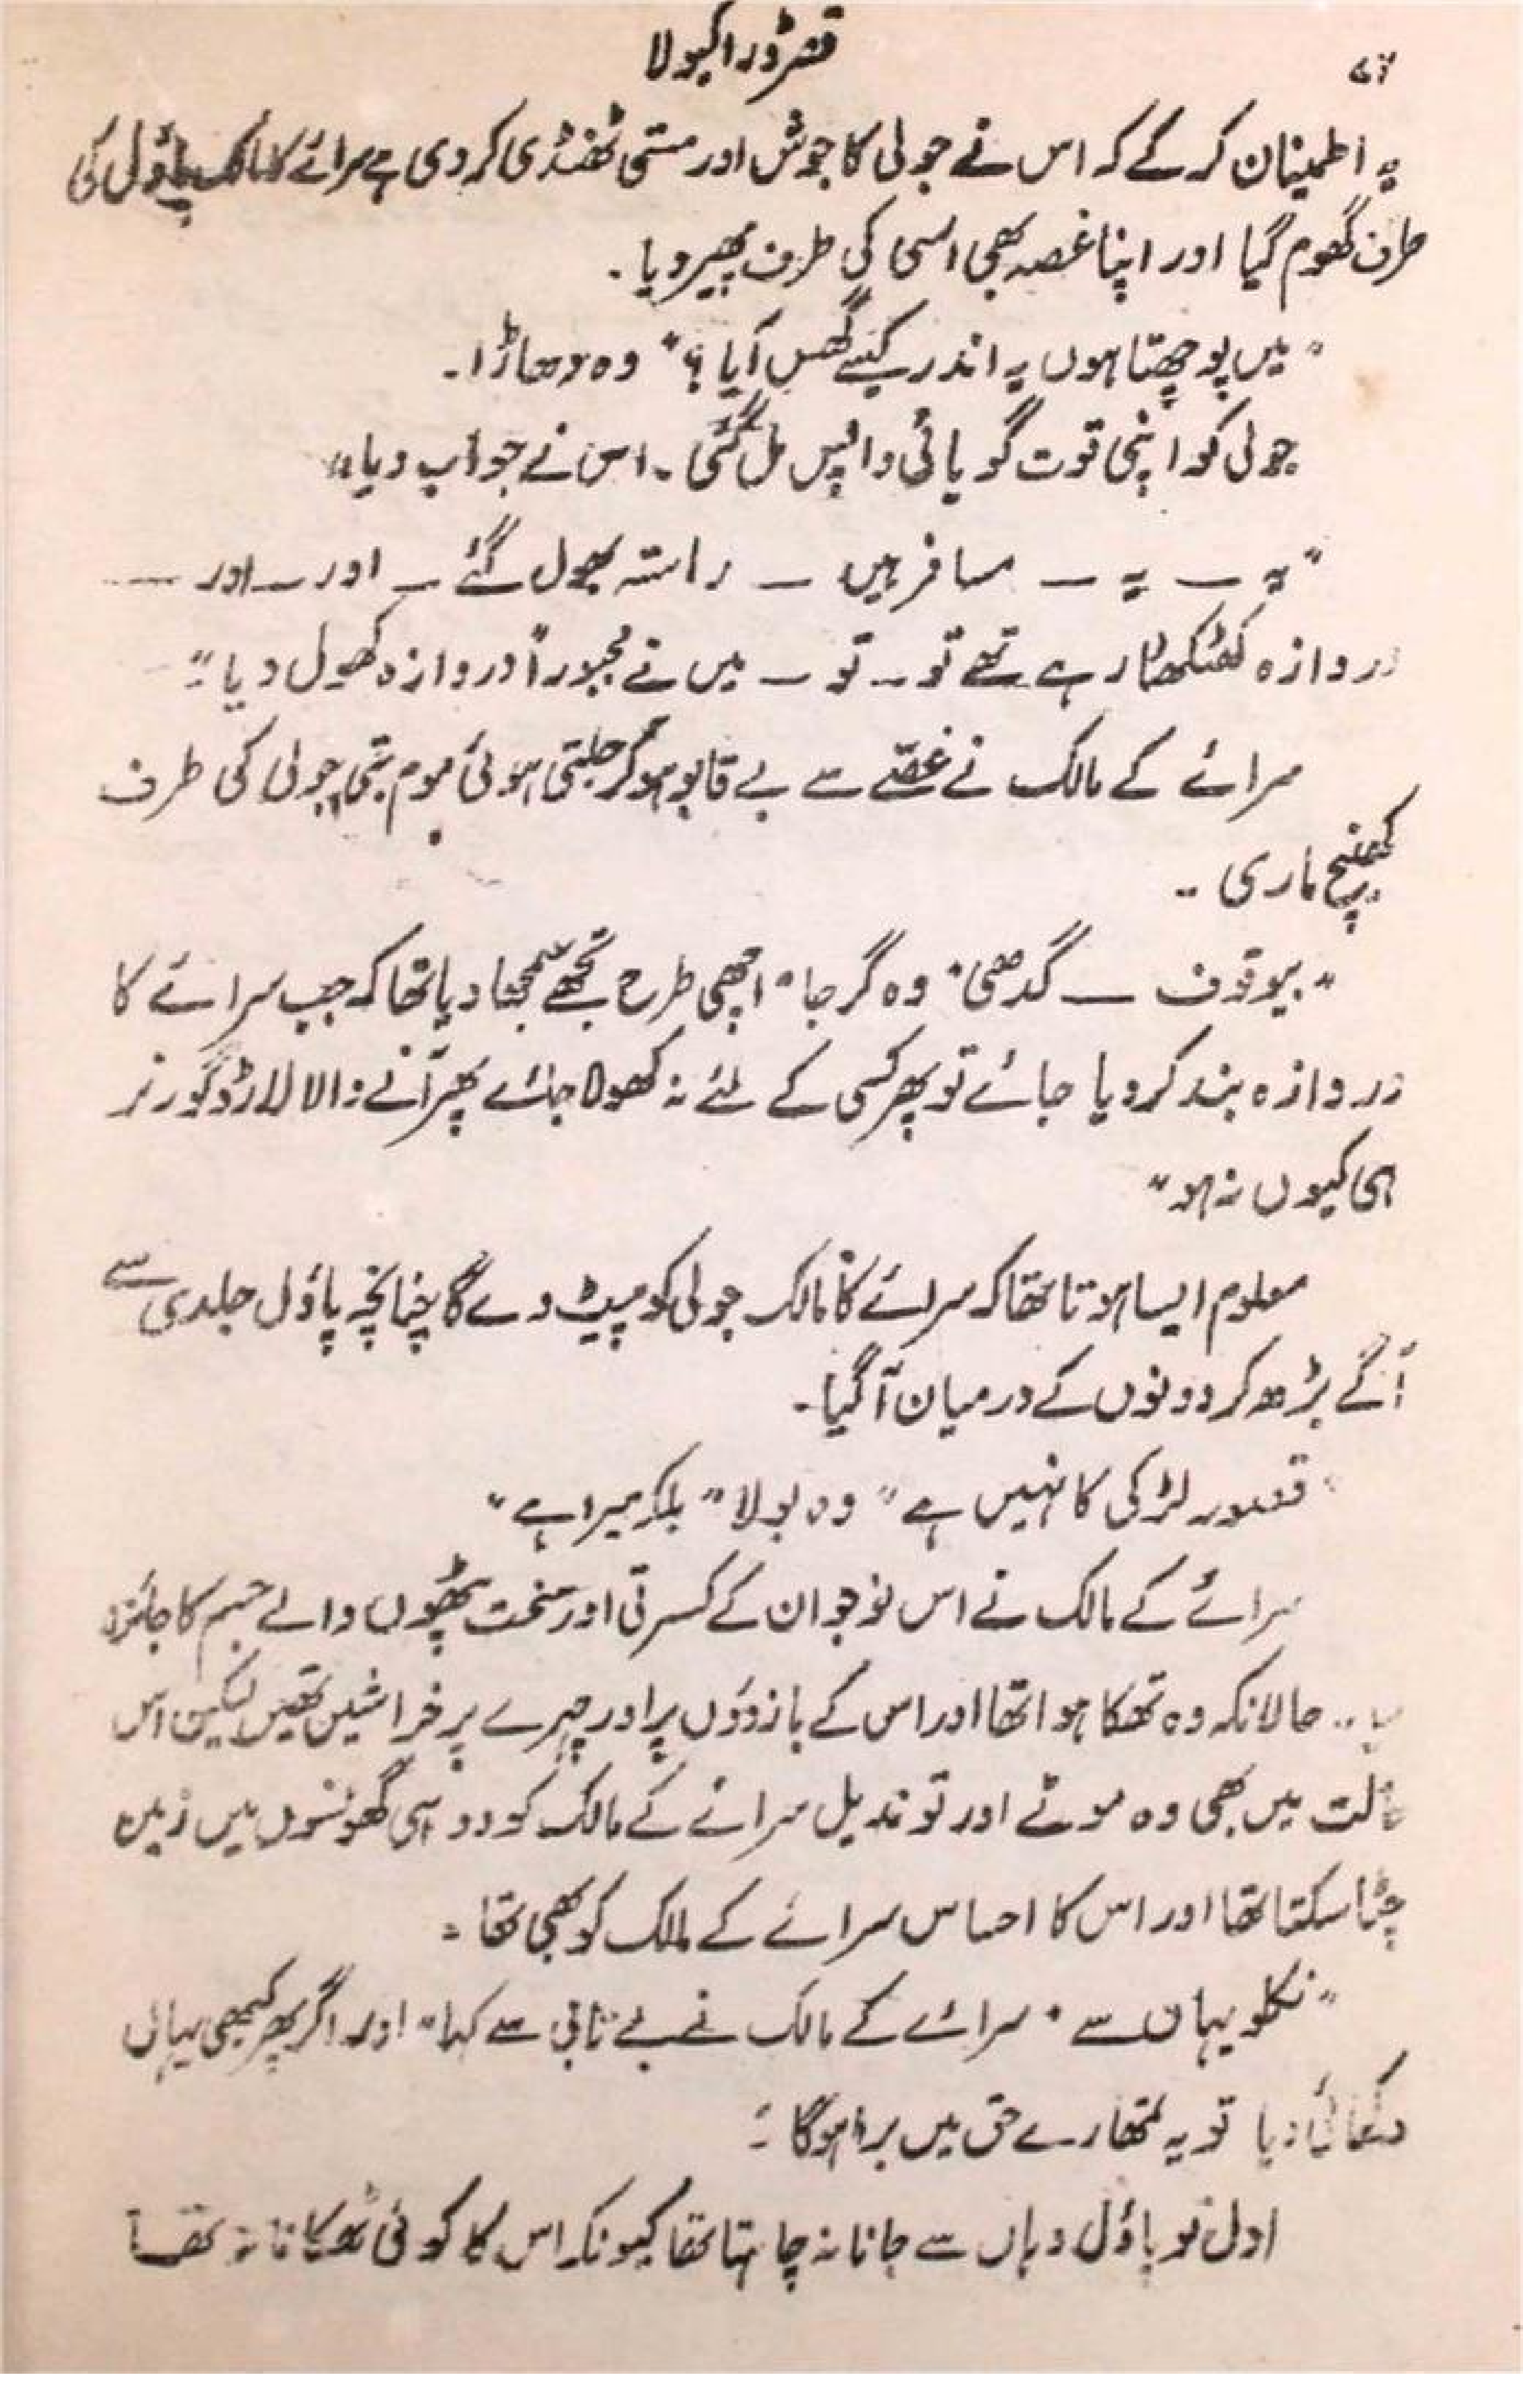 قصرِ ڈراکیولا
یہ اطمینان کر کے کہ اس نے جولی کا جوش اور مستی ٹھنڈی کر دی ہے سرائے کا مالک پاؤل کی
طرف گھوم گیا اور اپنا غصہ بھی اسی کی طرف پھیر دیا ۔
" میں پوچھتا ہوں یہ اندر کیسے گھس آیا ؟ " وہ دھاڑا ۔
جولی کو اپنی قوت گویائی واپس مل گئی ۔ اس نے جواب دیا "
" یہ ــ یہ ــ مسافر ہیں ــ راستہ بھول گئے ــ اور ــ اور ــــ
دروازہ کھٹکھٹا رہے تھے تو ــ تو ــ میں نے مجبوراً دروازہ کھول دیا "
سرائے کے مالک نے غصّے سے بے قابو ہو کر جلتی ہوئی موم بتی جولی کی طرف
کھینچ ماری ۔
" بیوقوف ــ گدھی " وہ گرجا " اچھی طرح تجھے سمجھا دیا تھا کہ جب سرائے کا
دروازہ بند کر دیا جائے تو پھر کسی کے لئے نہ کھولا جائے پھر آنے والا لارڈ گورنر
ہی کیوں نہ ہو "
معلوم ایسا ہوتا تھا کہ سرائے کا مالک جولی کو پیٹ دے گا چنانچہ پاؤل جلدی سے
آگے بڑھ کر دونوں کے درمیان آ گیا ۔
" قصور لڑکی کا نہیں ہے " وہ بولا " بلکہ میرا ہے "
سرائے کے مالک نے اس نوجوان کے کسرتی اور سخت پٹھوں والے جسم کا جائزہ
لیا ۔۔ حالانکہ وہ تھکا ہوا تھا اور اس کے بازوؤں پر اور چہرے پر خراشیں تھیں لیکن اس
حالت میں بھی وہ موٹے اور توندیل سرائے کے مالک کو دو ہی گھونسوں میں زمین
چٹا سکتا تھا اور اس کا احساس سرائے کے مالک کو بھی تھا ۔
" نکلو یہاں سے " سرائے کے مالک نے بے تابی سے کہا " اور اگر پھر کبھی یہاں
دکھائی دیا تو یہ تمھارے حق میں برا ہوگا "
اول تو پاؤل وہاں سے جانا نہ چاہتا تھا کیونکہ اس کا کوئی ٹھکانا نہ تھا